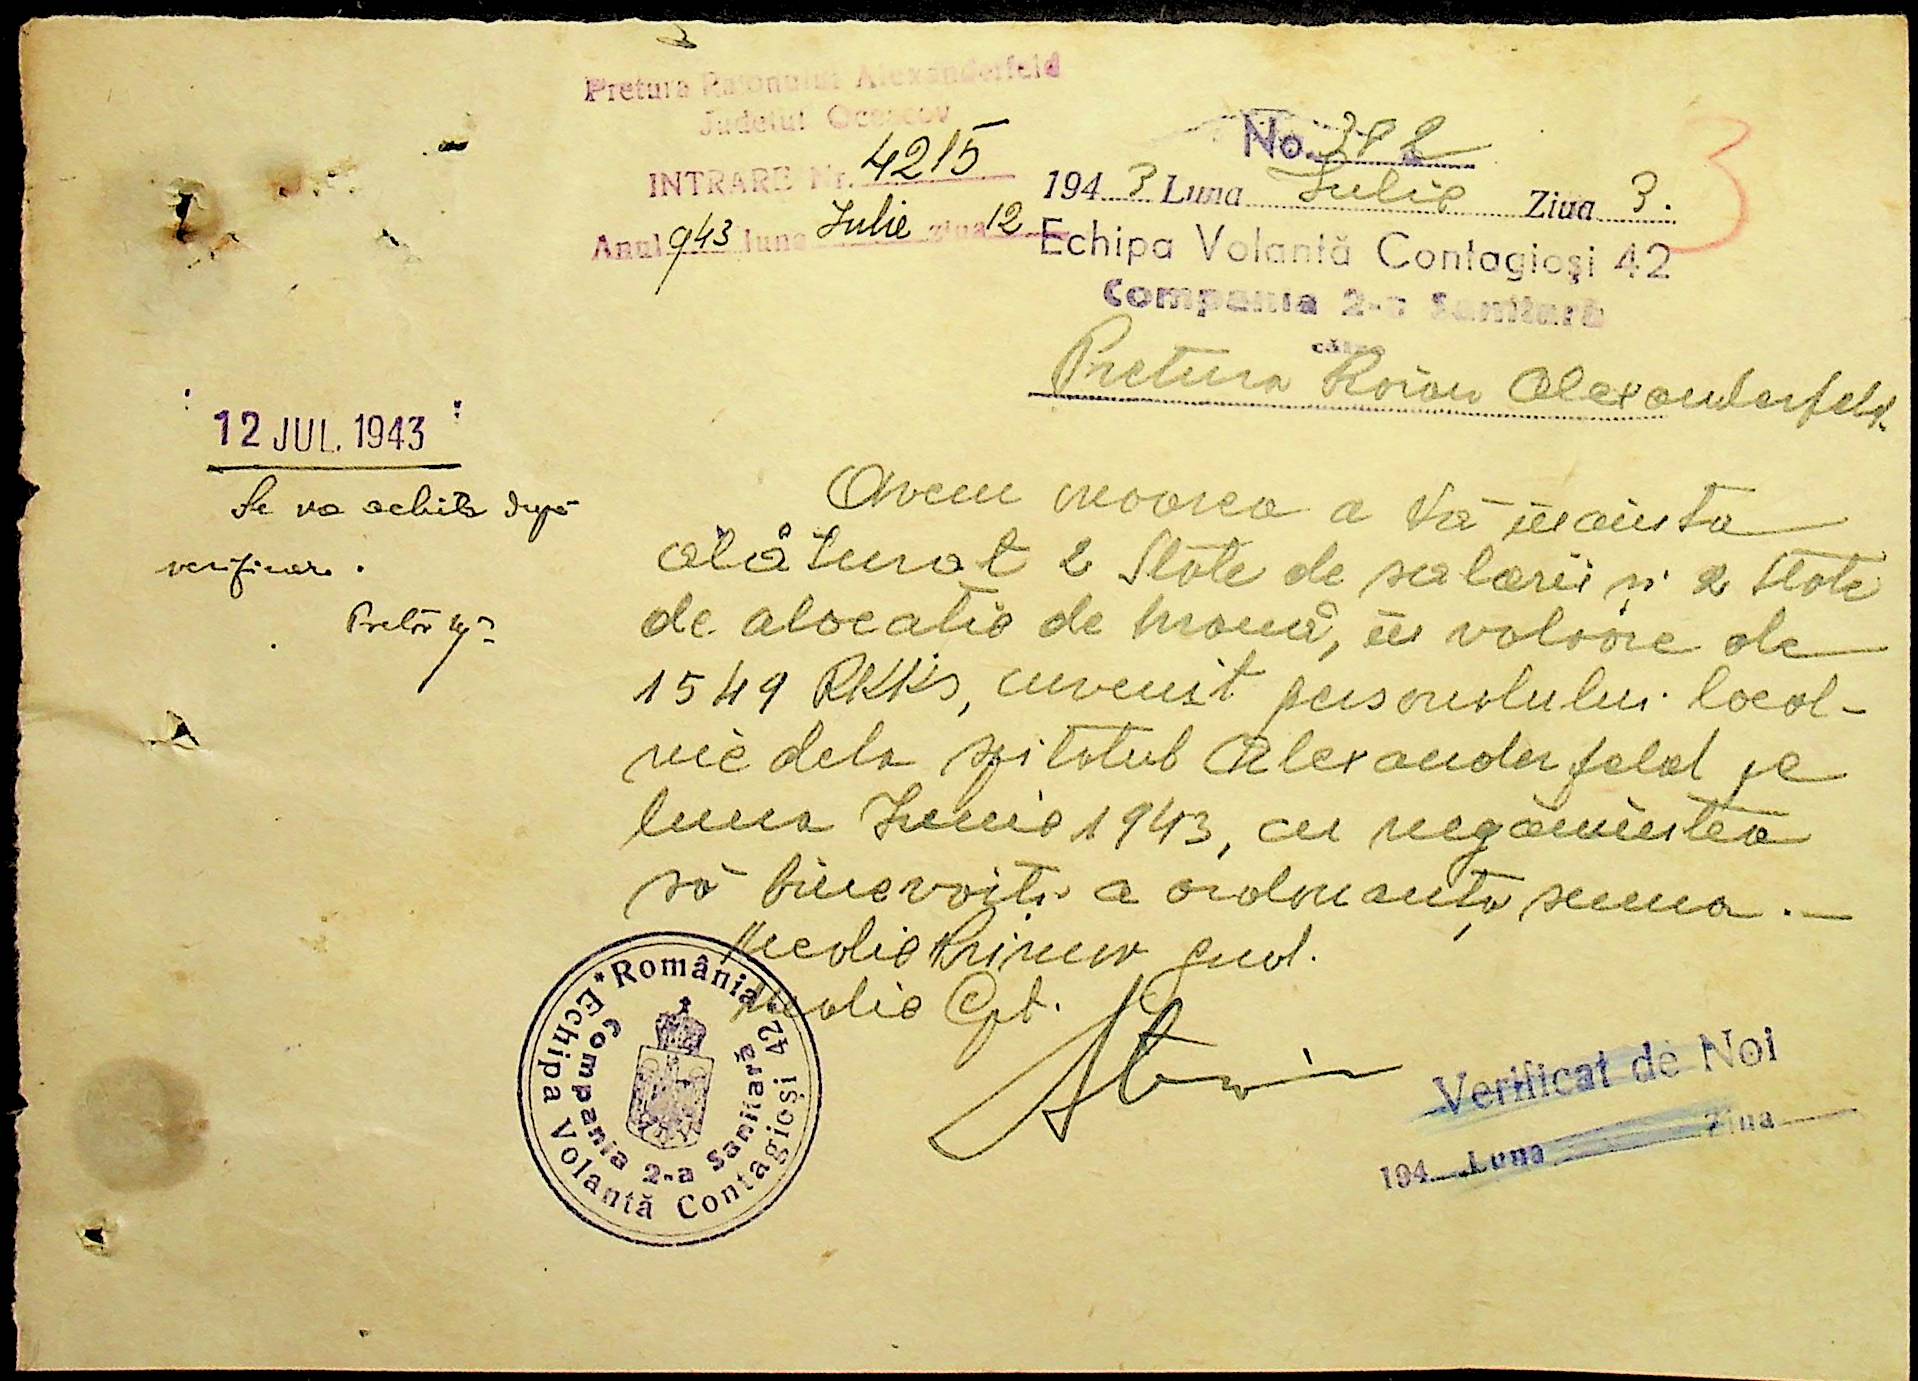 Pretura Raionului Alexanderfeld
Județul Oceacov
INTRARE Nr. 4215
Anul 943 luna Iulie ziua 12
No. 382
194 3 Luna Iulie Ziua 3.
3
Echipa Volantă Contagioși 42
Compania 2-a Sanitară
către
Pretura Raion Alexanderfeld.
12 JUL. 1943
Se va achita după
verificare.
Pretor
Avem onoarea a Vă înainta
alăturat 2 State de salarii și 2 State
de alocație de hrană, în valoare de
1549 RKKS, cuvenit personalului local-
nic dela spitalul Alexanderfeld pe
luna Iunie 1943, cu rugămintea
să binevoiți a ordonanța suma. —
Medic Primar gnd.
Medic Cpt.
România
Echipa Volantă Contagioși 42
Compania 2-a Sanitară
Verificat de Noi
194 Luna Ziua